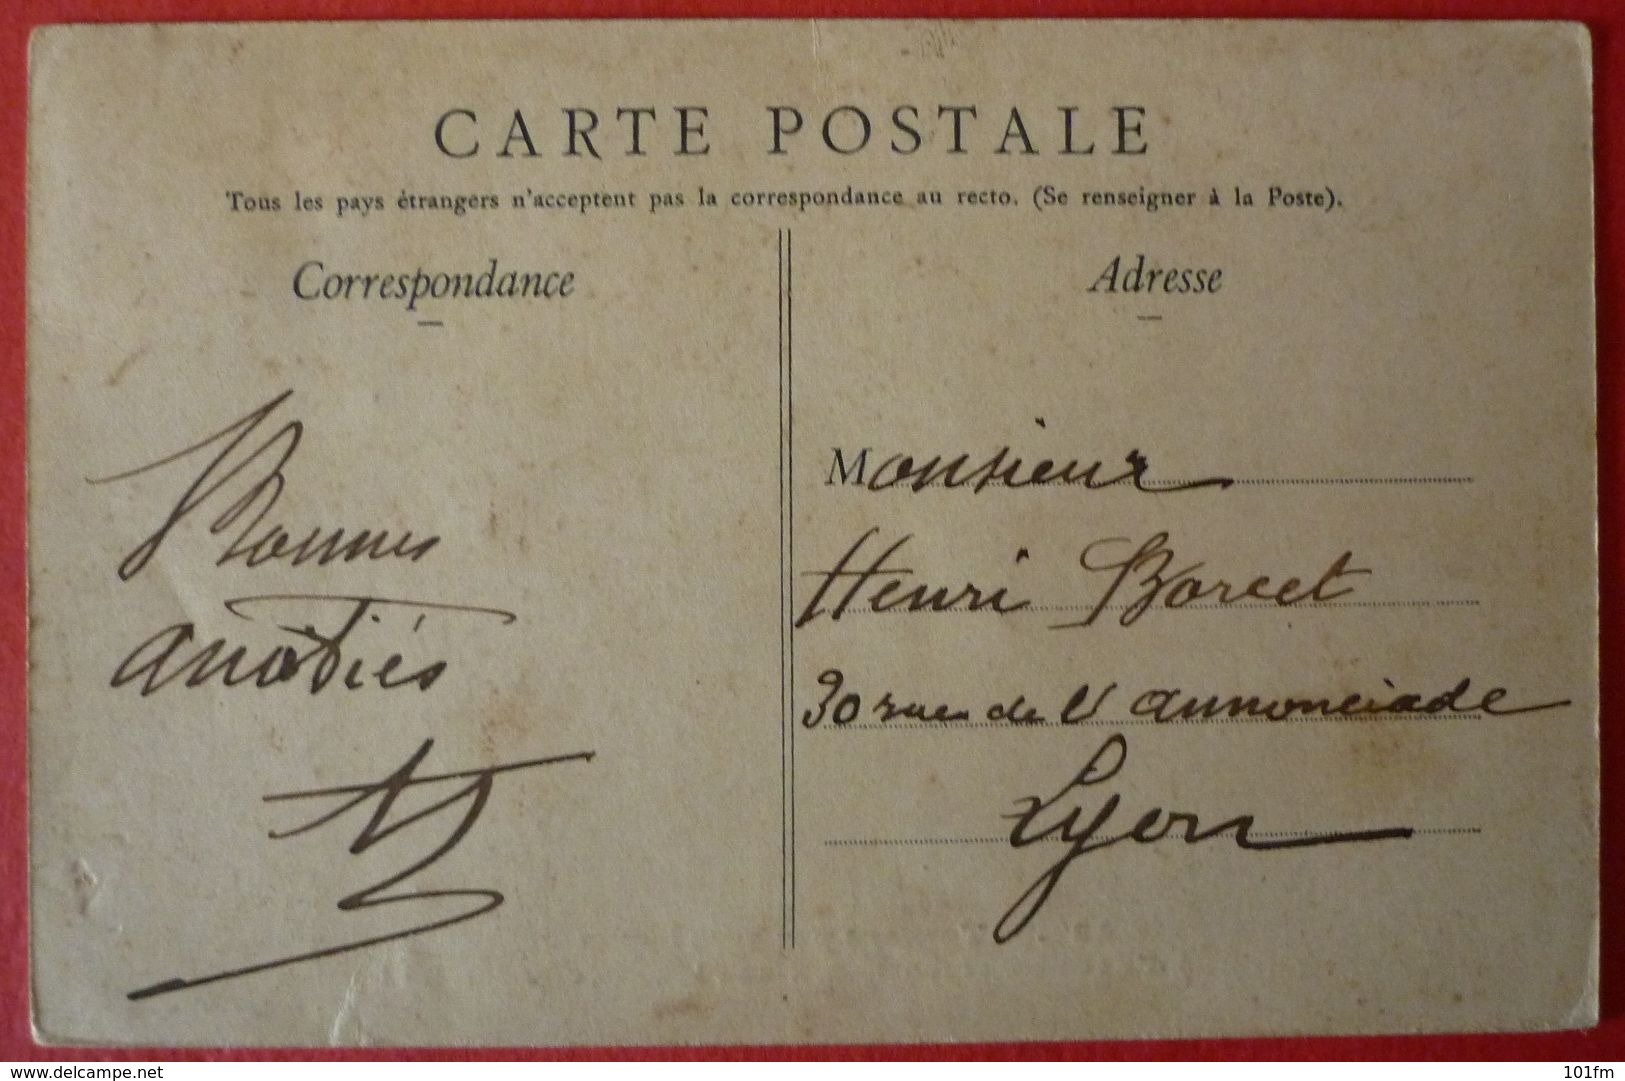 CARTE POSTALE
Tous les pays étrangers n'acceptent pas la correspondance au recto. (Se renseigner à la Poste).
Correspondance
Adresse
Bonnes
amitiés
Monsieur
Henri Borcet
30 rue de l'annonciade
Lyon
www.delcampe.net
101fm